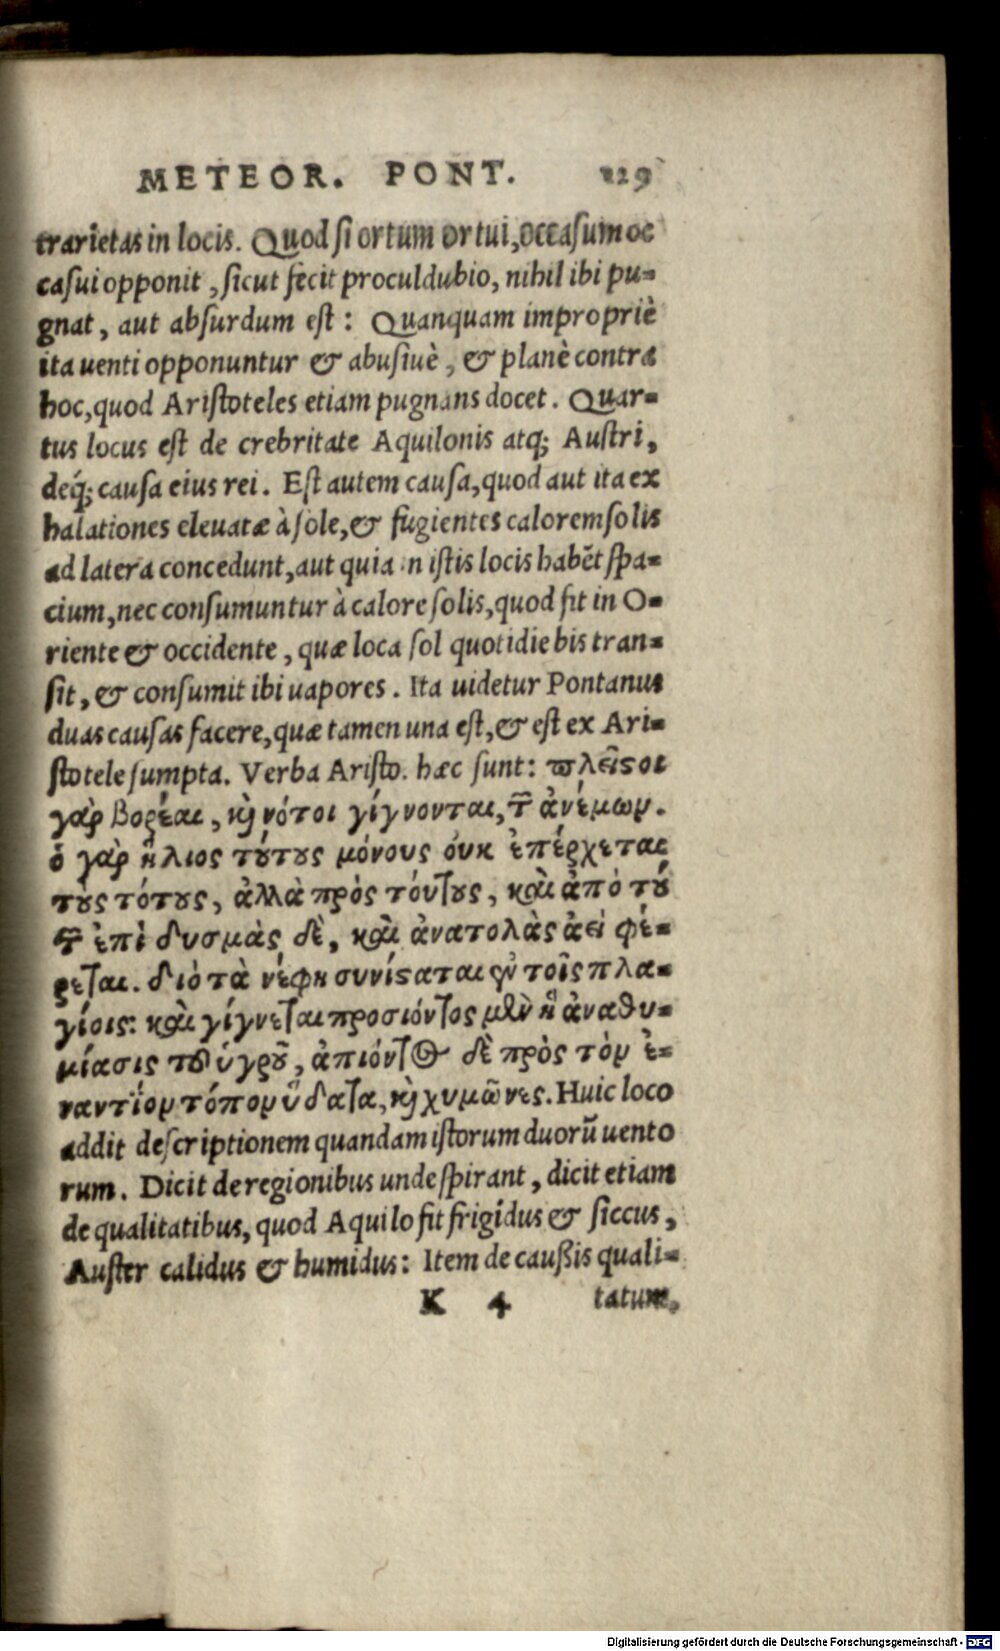 METEOR. PONT. 229
trarietas in locis. Quod si ortum ortui, occasum oc
casui opponit, sicut fecit proculdubio, nihil ibi pu-
gnat, aut absurdum est: Quanquam impropriè
ita uenti opponuntur & abusiuè, & planè contra
hoc, quod Aristoteles etiam pugnans docet. Quar-
tus locus est de crebritate Aquilonis atq; Austri,
deq́; causa eius rei. Est autem causa, quod aut ita ex
halationes eleuatæ à sole, & fugientes calorem solis
ad latera concedunt, aut quia in istis locis habẽt spa-
cium, nec consumuntur à calore solis, quod fit in O-
riente & occidente, quæ loca sol quotidie bis tran-
sit, & consumit ibi uapores. Ita uidetur Pontanus
duas causas facere, quæ tamen una est, & est ex Ari-
stotele sumpta. Verba Aristo. hæc sunt: πλεῖϛοι
γὰρ βορέαι, κỳ νότοι γίγνονται, τ͂ ἀνέμων.
ὁ γὰρ ἥλιος τούτους μόνους ὀυκ ἐπέρχεται
τοὺς τότους, ἀλλὰ πρὸς τόυτους, καὶ ἀπὸ τού
τ͂ ἐπὶ δυσμὰς δὲ, καὶ ἀνατολὰς ἀεὶ φέ-
ρεται. διὸ τὰ νέφη συνίϛαται ἐν τοῖς πλα-
γίοις: καὶ γίγνεται προσιόντος μὲν ἡ ἀναθυ-
μίασις τοῦ ὑγροῦ, ἀπιόντος δὲ πρὸς τὸν ἐ-
ναντίον τόπον ὕδατα, κỳ χυμῶνες. Huic loco
addit descriptionem quandam istorum duorũ uento
rum. Dicit de regionibus unde spirant, dicit etiam
de qualitatibus, quod Aquilo fit frigidus & siccus,
Auster calidus & humidus: Item de caußis quali-
K 4 tatum,
Digitalisierung gefördert durch die Deutsche Forschungsgemeinschaft - DFG